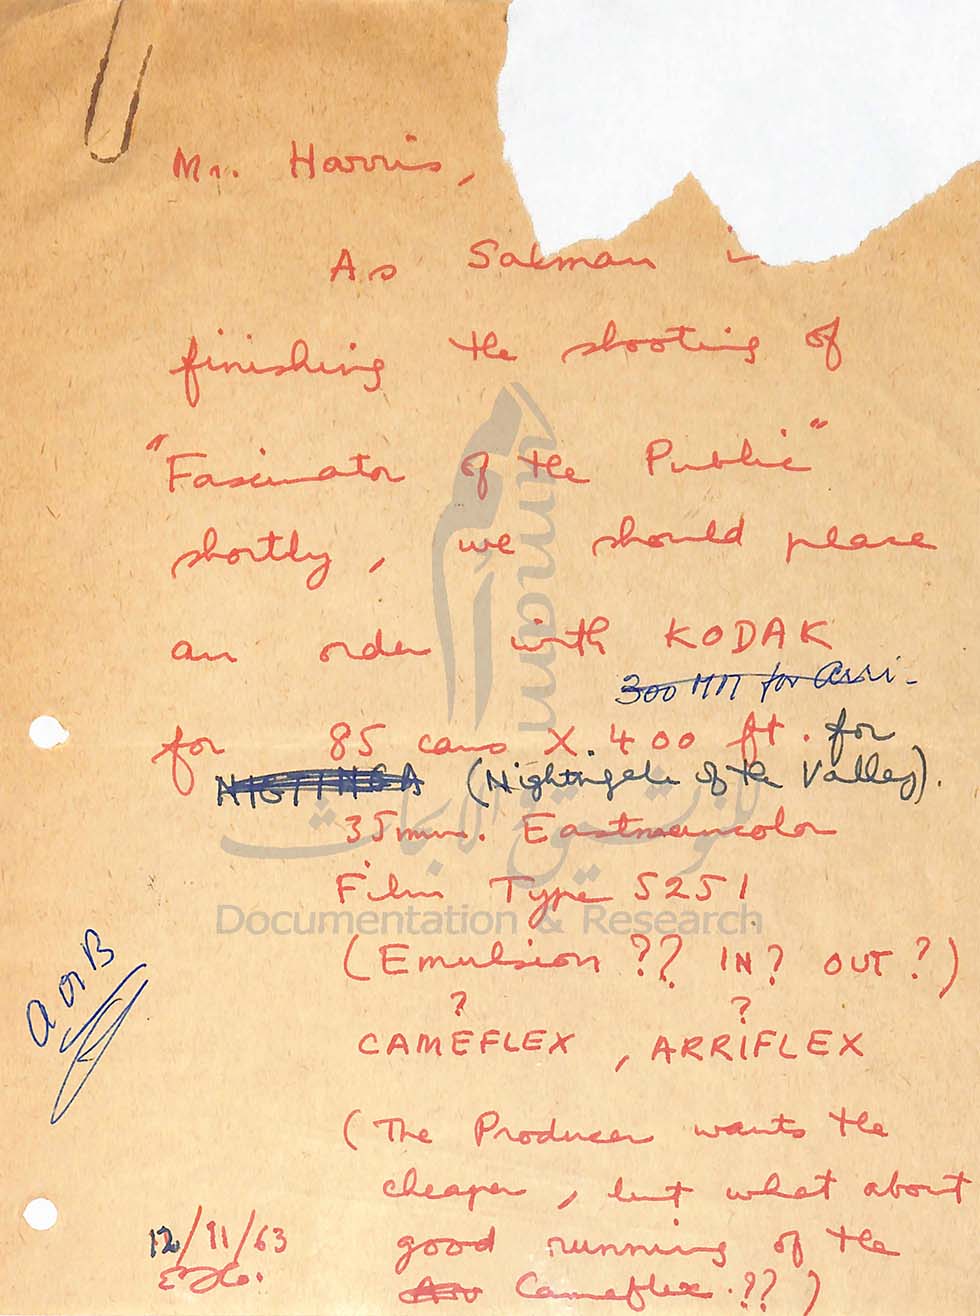 Mr. Harris,
As Salman i
finishing the shooting of
"Fascinator of the Public"
shortly, we should place
an order with KODAK
300 MM for Arri-
for 85 cans X 400 ft. for
NIGTINGA (Nightingale of the Valley).
35mm. Eastmancolor
Film Type 5251
(Emulsion ?? IN? OUT?)
? ?
CAMEFLEX, ARRIFLEX
(The Producer wants the
cheaper, but what about
good running of the
Cameflex.??)
A or B
12/11/63
Umam
للتوثيق والابحاث
Documentation & Research